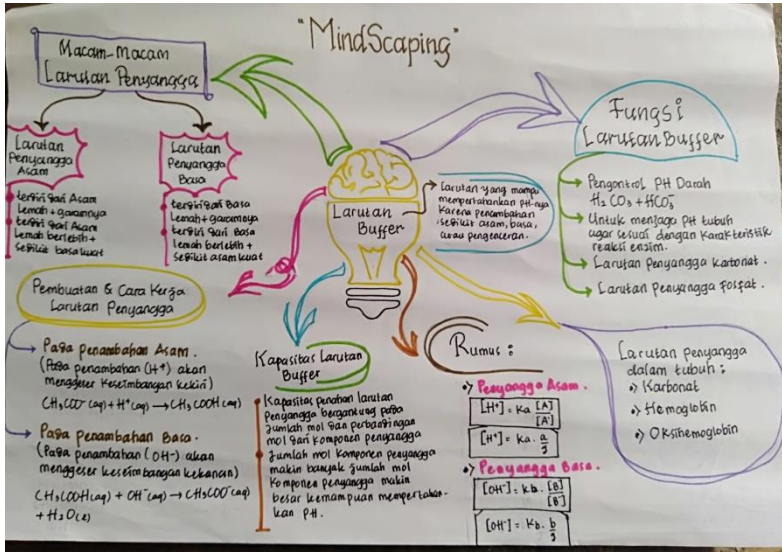 "MindScaping"
Macam-Macam
Larutan Penyangga
Larutan
Penyangga
Asam
terdiri dari Asam
Lemah + garamnya
terdiri dari Asam
Lemah berlebih +
sedikit basa kuat
Larutan
Penyangga
Basa
terdiri dari Basa
Lemah + garamnya
terdiri dari Basa
lemah berlebih +
sedikit asam kuat
Larutan
Buffer
Larutan yang mampu
mempertahankan pH-nya
karena penambahan
sedikit asam, basa,
atau pengenceran.
Fungsi
Larutan Buffer
Pengontrol PH Darah
H2CO3 + HCO3-
Untuk menjaga PH tubuh
agar sesuai dengan karakteristik
reaksi enzim.
Larutan Penyangga karbonat.
Larutan Penyangga fosfat.
Pembuatan & Cara Kerja
Larutan Penyangga
Pada penambahan Asam.
(Pada penambahan (H+) akan
menggeser keseimbangan kekiri)
CH3COO-(aq) + H+(aq) → CH3COOH(aq)
Pada penambahan Basa.
(Pada penambahan (OH-) akan
menggeser keseimbangan kekanan)
CH3COOH(aq) + OH-(aq) → CH3COO-(aq)
+ H2O(l)
Kapasitas Larutan
Buffer
Kapasitas penahan larutan
Penyangga bergantung pada
Jumlah mol dan perbandingan
mol dari komponen penyangga
Jumlah mol komponen penyangga
makin banyak jumlah mol
komponen penyangga makin
besar kemampuan mempertahan-
kan PH.
Rumus :
Penyangga Asam.
[H+] = Ka [A]/[A-]
[H+] = Ka . a/g
Penyangga Basa.
[OH-] = Kb . [B]/[B-]
[OH-] = Kb . b/g
Larutan penyangga
dalam tubuh :
Karbonat
Hemoglobin
Oksihemoglobin